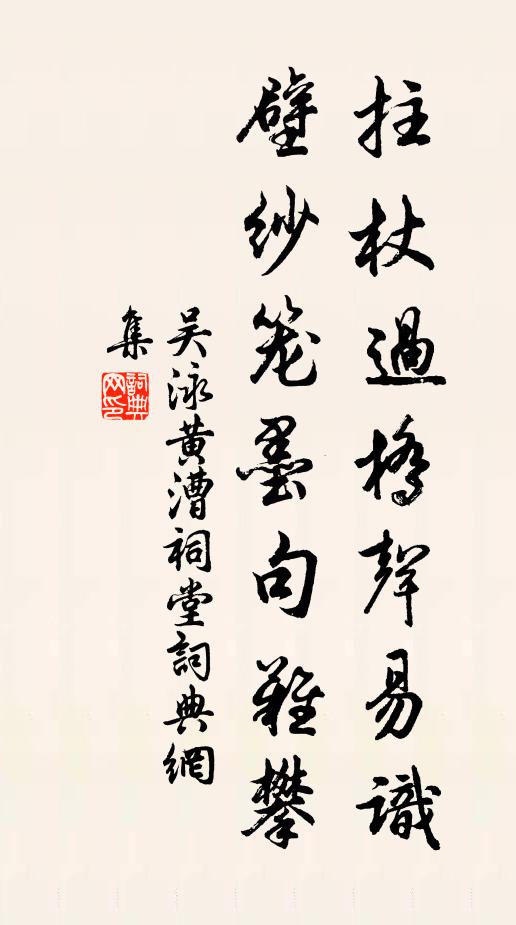 拄杖過橋聲易識
壁紗笼墨句難攀
吴泳黄漕祠堂詞典網
集
詞典
网印